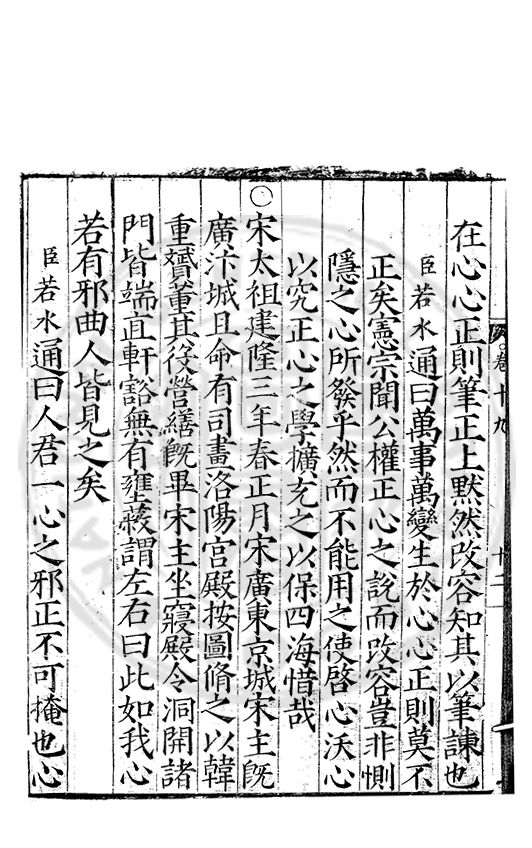 在心心正則筆正上黙然改容知其以筆諫也
臣若水通曰萬事萬變生於心心正則莫不
正矣憲宗聞公權正心之說而改容豈非惻
隱之心所發乎然而不能用之使啓心沃心
以究正心之學擴充之以保四海惜哉
○宋太祖建隆三年春正月宋廣東京城宋主旣
廣汴城且命有司畫洛陽宮殿按圖脩之以韓
重贇董其役營繕旣畢宋主坐寢殿令洞開諸
門皆端直軒豁無有壅蔽謂左右曰此如我心
若有邪曲人皆見之矣
臣若水通曰人君一心之邪正不可掩也心
卷十九
十二